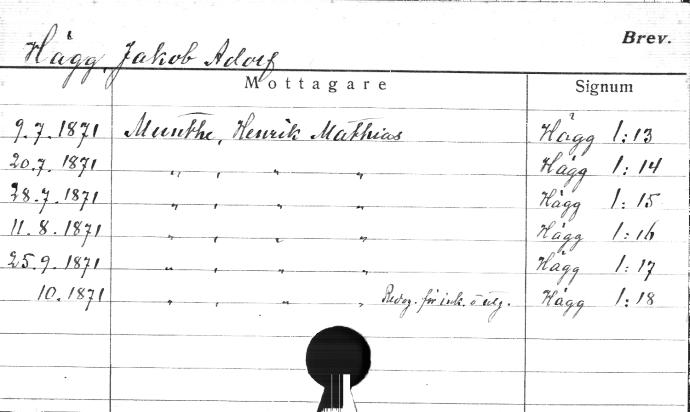 Brev.
Hägg, Jakob Adolf
Mottagare Signum
9.7.1871 Munthe, Henrik Mathias Hägg 1:13
20.7.1871 " , " " Hägg 1:14
28.7.1871 " , " " Hägg 1:15
11.8.1871 " , " " Hägg 1:16
25.9.1871 " , " " Hägg 1:17
10.1871 " , " " Redog. för ink. o utg. Hägg 1:18